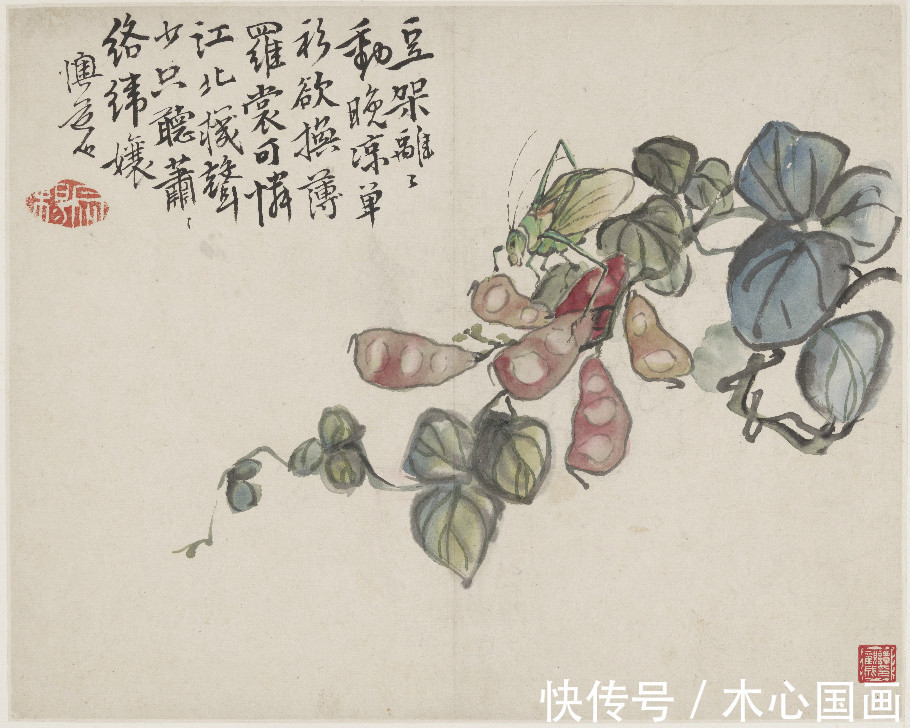 豆架離〻
動晚涼單
衫欲換薄
羅裳可憐
江北機聲
少只聽蕭〻
絡緯孃
懊道人
快传号 / 木心国画